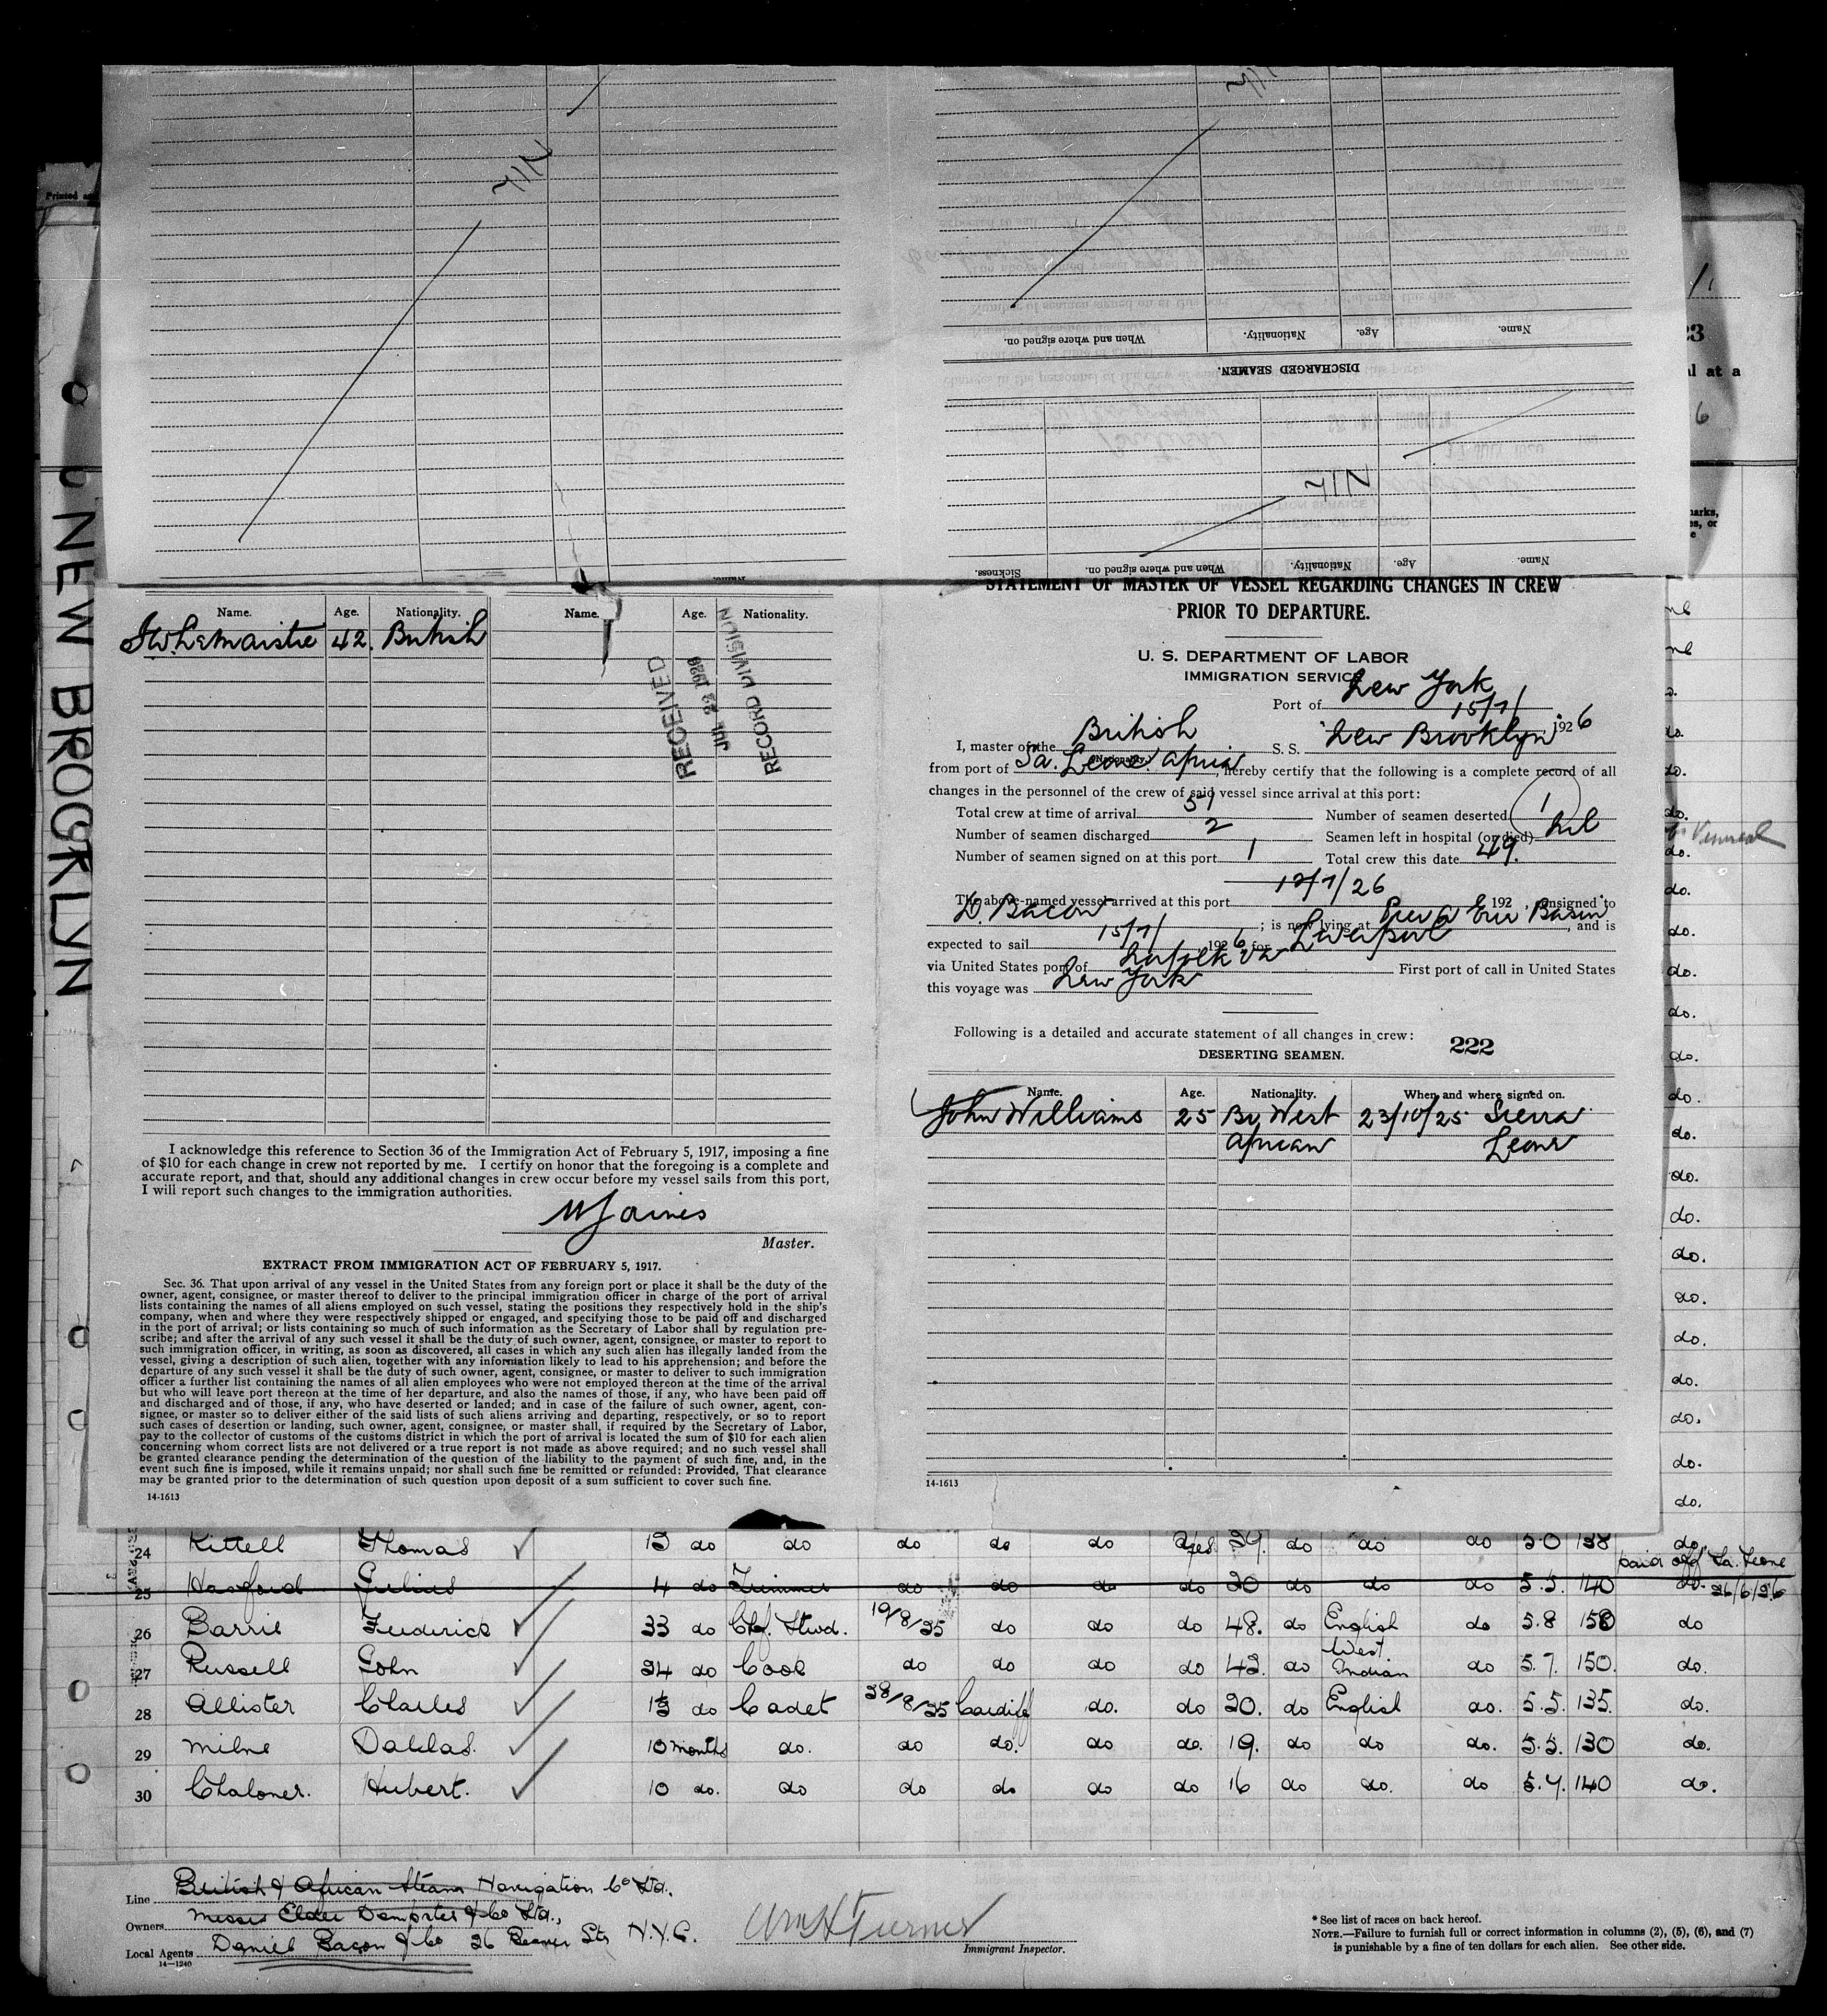 Printed
NEW BROOKLYN
Nil
Nil
Name. Age. Nationality. When and where signed on.
DISCHARGED SEAMEN.
Nil
Name. Age. Nationality. When and where signed on. Sickness.
23
al at a
6
Name. Age. Nationality. Name. Age. Nationality.
J W LeMaistre 42. British
RECEIVED
JUL 22 1926
RECORD DIVISION
I acknowledge this reference to Section 36 of the Immigration Act of February 5, 1917, imposing a fine
of $10 for each change in crew not reported by me. I certify on honor that the foregoing is a complete and
accurate report, and that, should any additional changes in crew occur before my vessel sails from this port,
I will report such changes to the immigration authorities.
Master.
EXTRACT FROM IMMIGRATION ACT OF FEBRUARY 5, 1917.
Sec. 36. That upon arrival of any vessel in the United States from any foreign port or place it shall be the duty of the
owner, agent, consignee, or master thereof to deliver to the principal immigration officer in charge of the port of arrival
lists containing the names of all aliens employed on such vessel, stating the positions they respectively hold in the ship's
company, when and where they were respectively shipped or engaged, and specifying those to be paid off and discharged
in the port of arrival; or lists containing so much of such information as the Secretary of Labor shall by regulation pre-
scribe; and after the arrival of any such vessel it shall be the duty of such owner, agent, consignee, or master to report to
such immigration officer, in writing, as soon as discovered, all cases in which any such alien has illegally landed from the
vessel, giving a description of such alien, together with any information likely to lead to his apprehension; and before the
departure of any such vessel it shall be the duty of such owner, agent, consignee, or master to deliver to such immigration
officer a further list containing the names of all alien employees who were not employed thereon at the time of the arrival
but who will leave port thereon at the time of her departure, and also the names of those, if any, who have been paid off
and discharged and of those, if any, who have deserted or landed; and in case of the failure of such owner, agent, con-
signee, or master so to deliver either of the said lists of such aliens arriving and departing, respectively, or so to report
such cases of desertion or landing, such owner, agent, consignee, or master shall, if required by the Secretary of Labor,
pay to the collector of customs of the customs district in which the port of arrival is located the sum of $10 for each alien
concerning whom correct lists are not delivered or a true report is not made as above required; and no such vessel shall
be granted clearance pending the determination of the question of the liability to the payment of such fine, and, in the
event such fine is imposed, while it remains unpaid; nor shall such fine be remitted or refunded: Provided, That clearance
may be granted prior to the determination of such question upon deposit of a sum sufficient to cover such fine.
14-1613
STATEMENT OF MASTER OF VESSEL REGARDING CHANGES IN CREW
PRIOR TO DEPARTURE.
U. S. DEPARTMENT OF LABOR
IMMIGRATION SERVICE
Port of New York
15/7/ 1926
I, master of the British S. S. New Brooklyn
(Nationality.)
from port of Sa. Leone Africa, hereby certify that the following is a complete record of all
changes in the personnel of the crew of said vessel since arrival at this port:
Total crew at time of arrival 51 Number of seamen deserted 1
Number of seamen discharged 2 Seamen left in hospital (or died) Nil
Number of seamen signed on at this port 1 Total crew this date 49.
The above-named vessel arrived at this port 12/7/26 192 , consigned to
D. Bacon ; is now lying at Pier Erie Basin, and is
expected to sail 15/7/ 1926, for Liverpool
via United States port of Norfolk Va First port of call in United States
this voyage was New York
Following is a detailed and accurate statement of all changes in crew:
222
DESERTING SEAMEN.
Name. Age. Nationality. When and where signed on.
John Williams 25 Br West 23/10/25 Sierra
African Leone
14-1613
24 Kittell Thomas 12 do do do do do yes 29. do do do 5.0 138 do
paid off Sa. Leone
25 Haxford Julius 4 do Trimmer do do do do 20 do do do 5.5. 140 do. 26/6/26
26 Barrie Frederick 33 do Chf. Stwd. 19/8/25 do do do 48. do English do 5.8 158 do
27 Russell John 24 do Cook do do do do 42. do West Indian do 5.7. 150. do.
28 Allister Charles do Cadet 28/8/25 Cardiff do. do 20. do English do. 5.5. 135. do.
29 Milne Dallas. 10 months do. do do. do do. 19. do do do. 5.5. 130 do.
30 Chaloner. Hubert. 10 do. do do do do do 16 do do. do 5.7. 140 do.
Line British & African Steam Navigation Co Ltd.
Owners Messrs Elder Dempster & Co Ltd.,
Local Agents Daniel Bacon & Co 26 Beaver St. N.Y.C.
14-1240
Wm H Turner
Immigrant Inspector.
* See list of races on back hereof.
NOTE.—Failure to furnish full or correct information in columns (2), (5), (6), and (7)
is punishable by a fine of ten dollars for each alien. See other side.